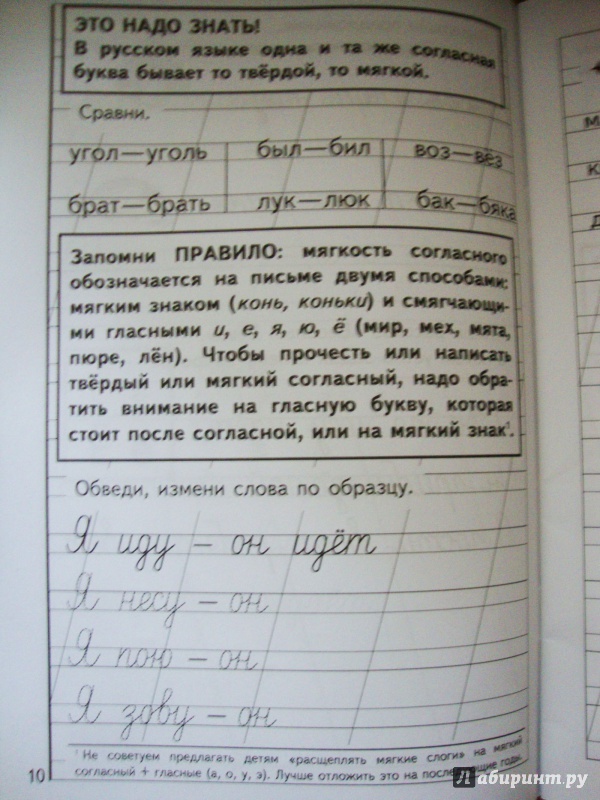 ЭТО НАДО ЗНАТЬ!
В русском языке одна и та же согласная
буква бывает то твёрдой, то мягкой.
Сравни.
угол—уголь был—бил воз—вёз
брат—брать лук—люк бак—бяка
Запомни ПРАВИЛО: мягкость согласного
обозначается на письме двумя способами:
мягким знаком (конь, коньки) и смягчающи-
ми гласными и, е, я, ю, ё (мир, мех, мята,
пюре, лён). Чтобы прочесть или написать
твёрдый или мягкий согласный, надо обра-
тить внимание на гласную букву, которая
стоит после согласной, или на мягкий знак¹.
Обведи, измени слова по образцу.
Я иду – он идёт
Я несу – он
Я пою – он
Я зову – он
¹ Не советуем предлагать детям «расщеплять мягкие слоги» на мягкий
согласный + гласные (а, о, у, э). Лучше отложить это на годы.
10
Лабиринт.ру
м
к
д